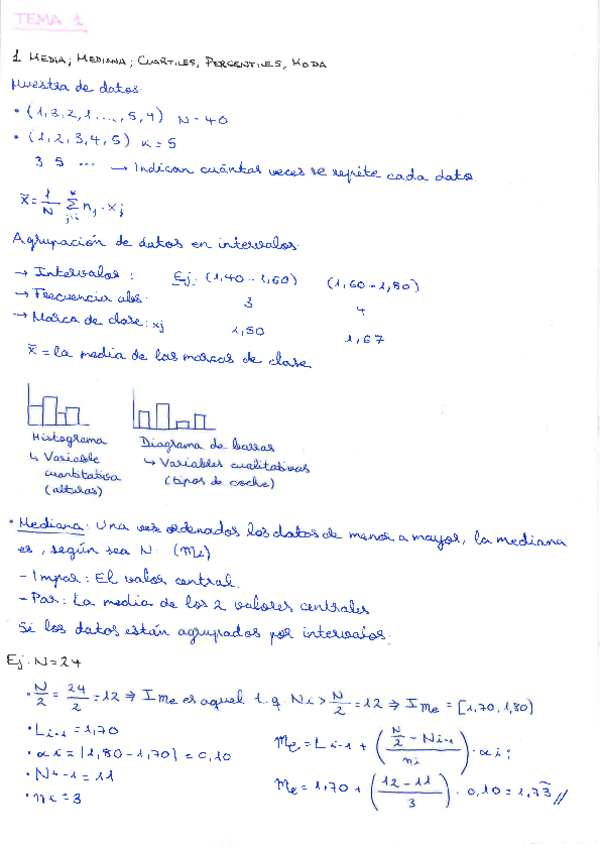 TEMA 1
1. MEDIA; MEDIANA; CUARTILES, PERCENTILES, MODA
Muestra de datos:
• (1,3,2,1...,5,4) N=40
• (1,2,3,4,5) K=5
3 5 ... → Indican cuántas veces se repite cada dato
x̄ = 1/N Σ nj · xj
Agrupación de datos en intervalos:
→ Intervalos: Ej: (1,40 -- 1,60) (1,60 -- 1,80)
→ Frecuencia abs: 3 4
→ Marca de clase: xj 1,50 1,67
x̄ = la media de las marcas de clase
Histograma Diagrama de barras
↳ Variable ↳ Variables cualitativas
cuantitativa (tipos de coche)
(alturas)
• Mediana: Una vez ordenados los datos de menor a mayor, la mediana
es, según sea N: (Me)
- Impar: El valor central.
- Par: La media de los 2 valores centrales
Si los datos están agrupados por intervalos:
Ej: N=24
• N/2 = 24/2 = 12 ⇒ I Me es aquel t.q. Ni > N/2 = 12 ⇒ I Me = [1,70, 1,80)
• Li-1 = 1,70
• ai = |1,80 - 1,70| = 0,10
• Ni-1 = 11
• ni = 3
Me = Li-1 + ((N/2 - Ni-1)/ni) · ai ;
Me = 1,70 + ((12-11)/3) · 0,10 = 1,73 //